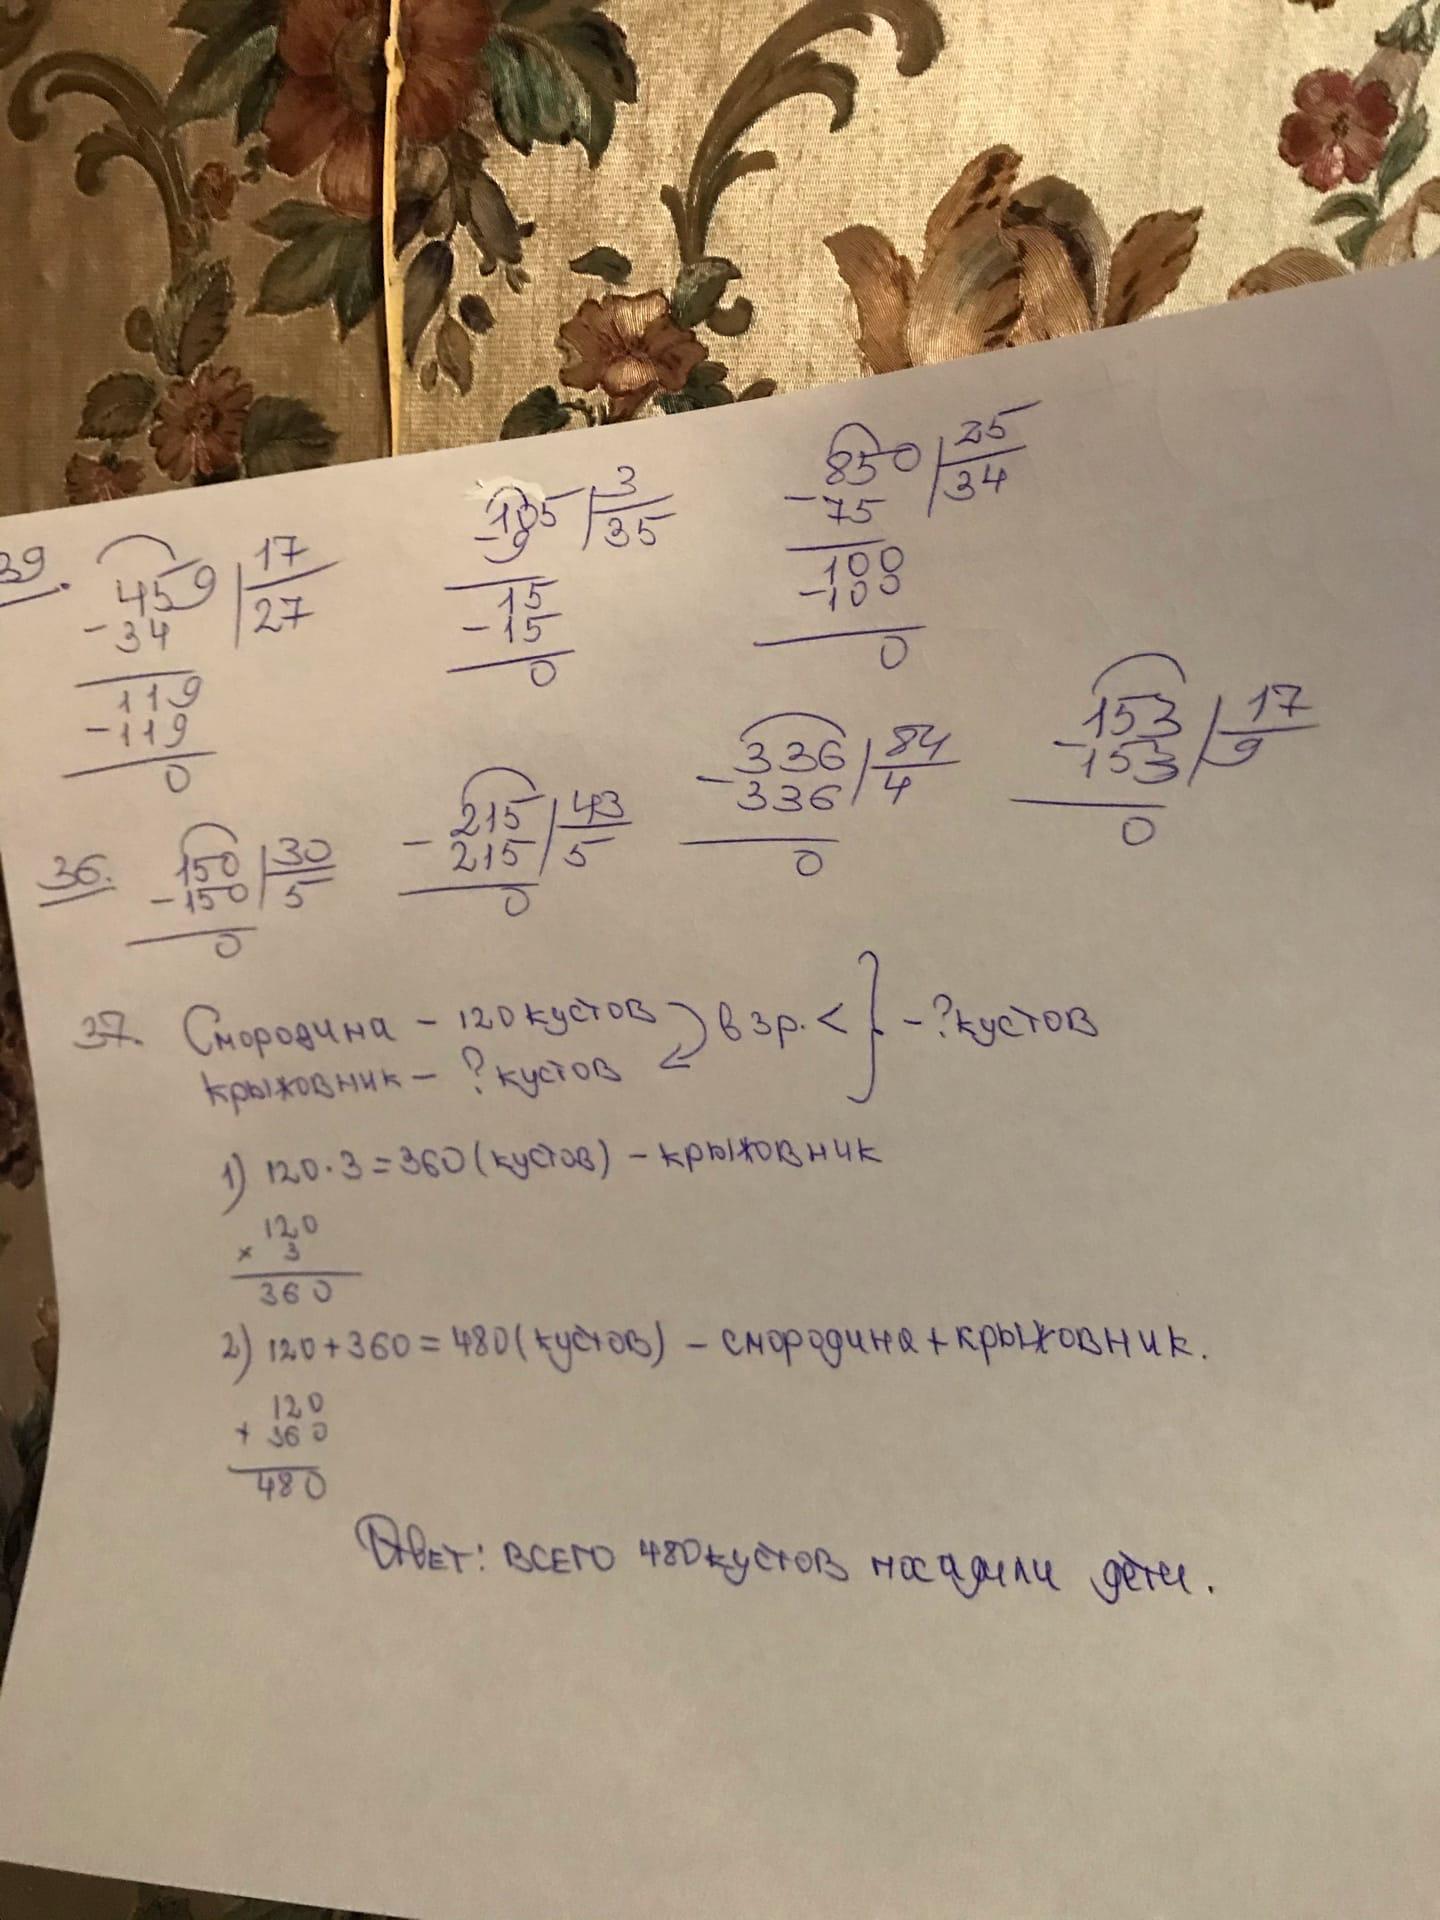 39. 459 | 17   105 | 3   850 | 25
-34 | 27   -9 | 35   -75 | 34
119   15   100
-119   -15   -100
0   0   0
36. 150 | 30   215 | 43   336 | 84   153 | 17
-150 | 5   -215 | 5   -336 | 4   -153 | 9
0   0   0   0
37. Смородина - 120 кустов в 3р. < } - ? кустов
крыжовник - ? кустов
1) 120 · 3 = 360 (кустов) - крыжовник
120
× 3
360
2) 120 + 360 = 480 (кустов) - смородина + крыжовник.
120
+ 360
480
Ответ: всего 480 кустов посадили дети.